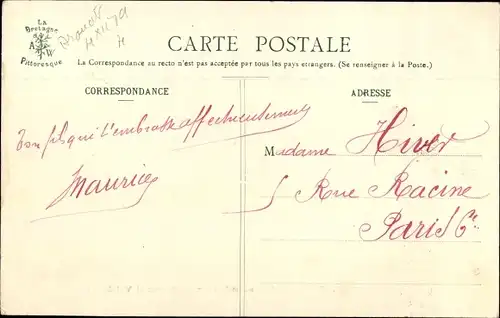 LA
Bretagne
A W
Pittoresque
CARTE POSTALE
La Correspondance au recto n'est pas acceptée par tous les pays étrangers. (Se renseigner à la Poste.)
CORRESPONDANCE
ADRESSE
Ton fils qui t'embrasse affectueusement
Maurice
Madame Hiver
5 Rue Racine
Paris 6e